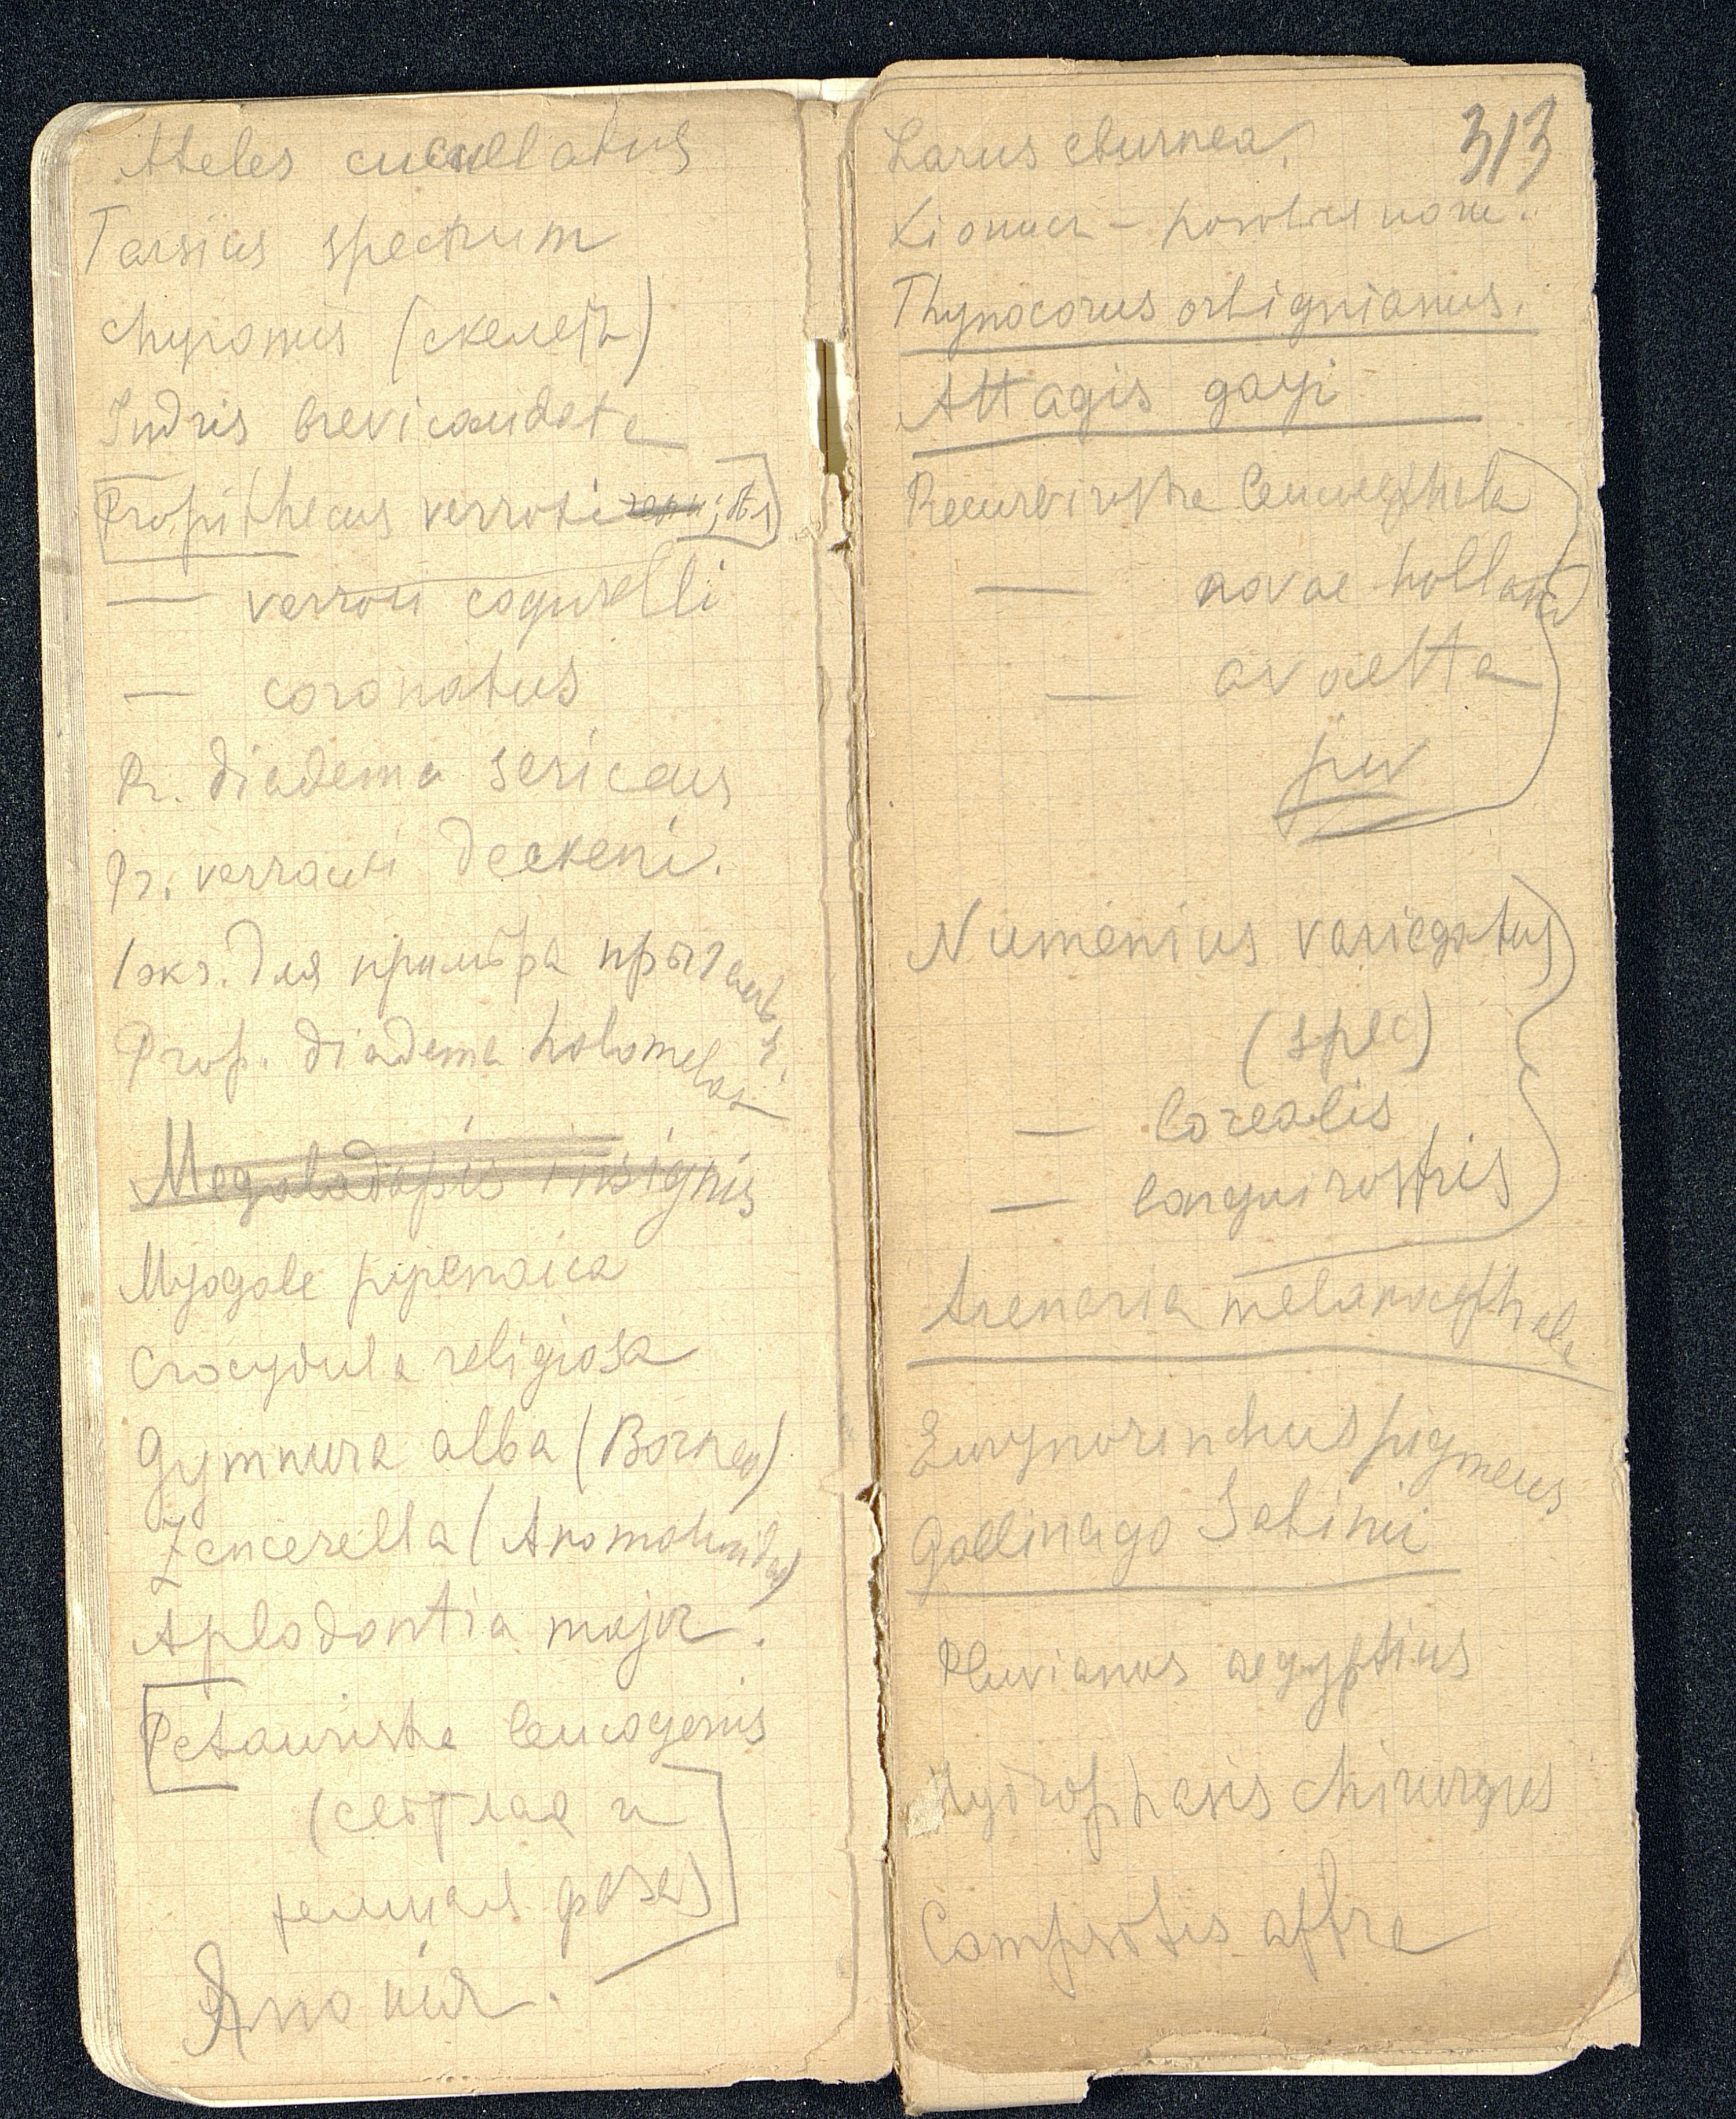 Ateles cucullatus
Tarsius spectrum
Chyromis (скелетъ)
Indris brevicaudata
Propithecus verroxi
— verroxi coqurelli
— coronatus
Pr. diadema sericeus
Pr. verrauxi deckeni.
1 экз. для примѣра прыганья.
Prop. diadema holomelas
Megaladapis insignis
Myogale pyrenaica
Crocydula religiosa
Gymnura alba (Borneo)
Zencerella (Anomaluridae)
Aplodontia major.
Petaurista leucogenis
(свѣтлая и
темная фаза)
Японія.
313
Larus eburnea.
Хіонисъ — розовыя нож.
Thynocorus orbignianus.
Attagis gayi
Recurvirostra leucocephala
— novae holland
— avocetta
juv
Numenius variegatus
(spec)
— borealis
— longuirostris
Arenaria melanocephala
Eurynorinchus pigmeus
Gallinago Sabinii
Pluvianus aegyptius
Hydrophasis chirurgus
Compsotis afra